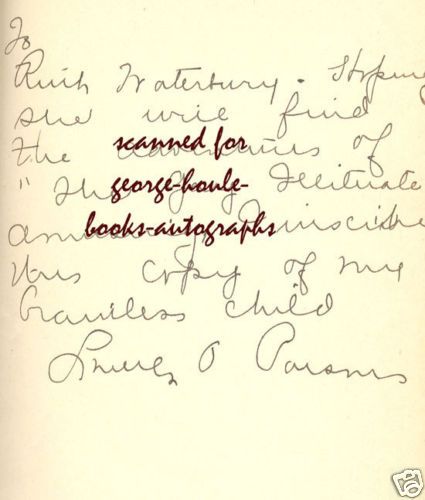 To
Ruth Waterbury - Hoping
she will find
the adventures of
scanned for
" The Gay Illiterate
george-houle-
inscribe
books-autographs
this copy of my
brainless child
Louella O Parsons